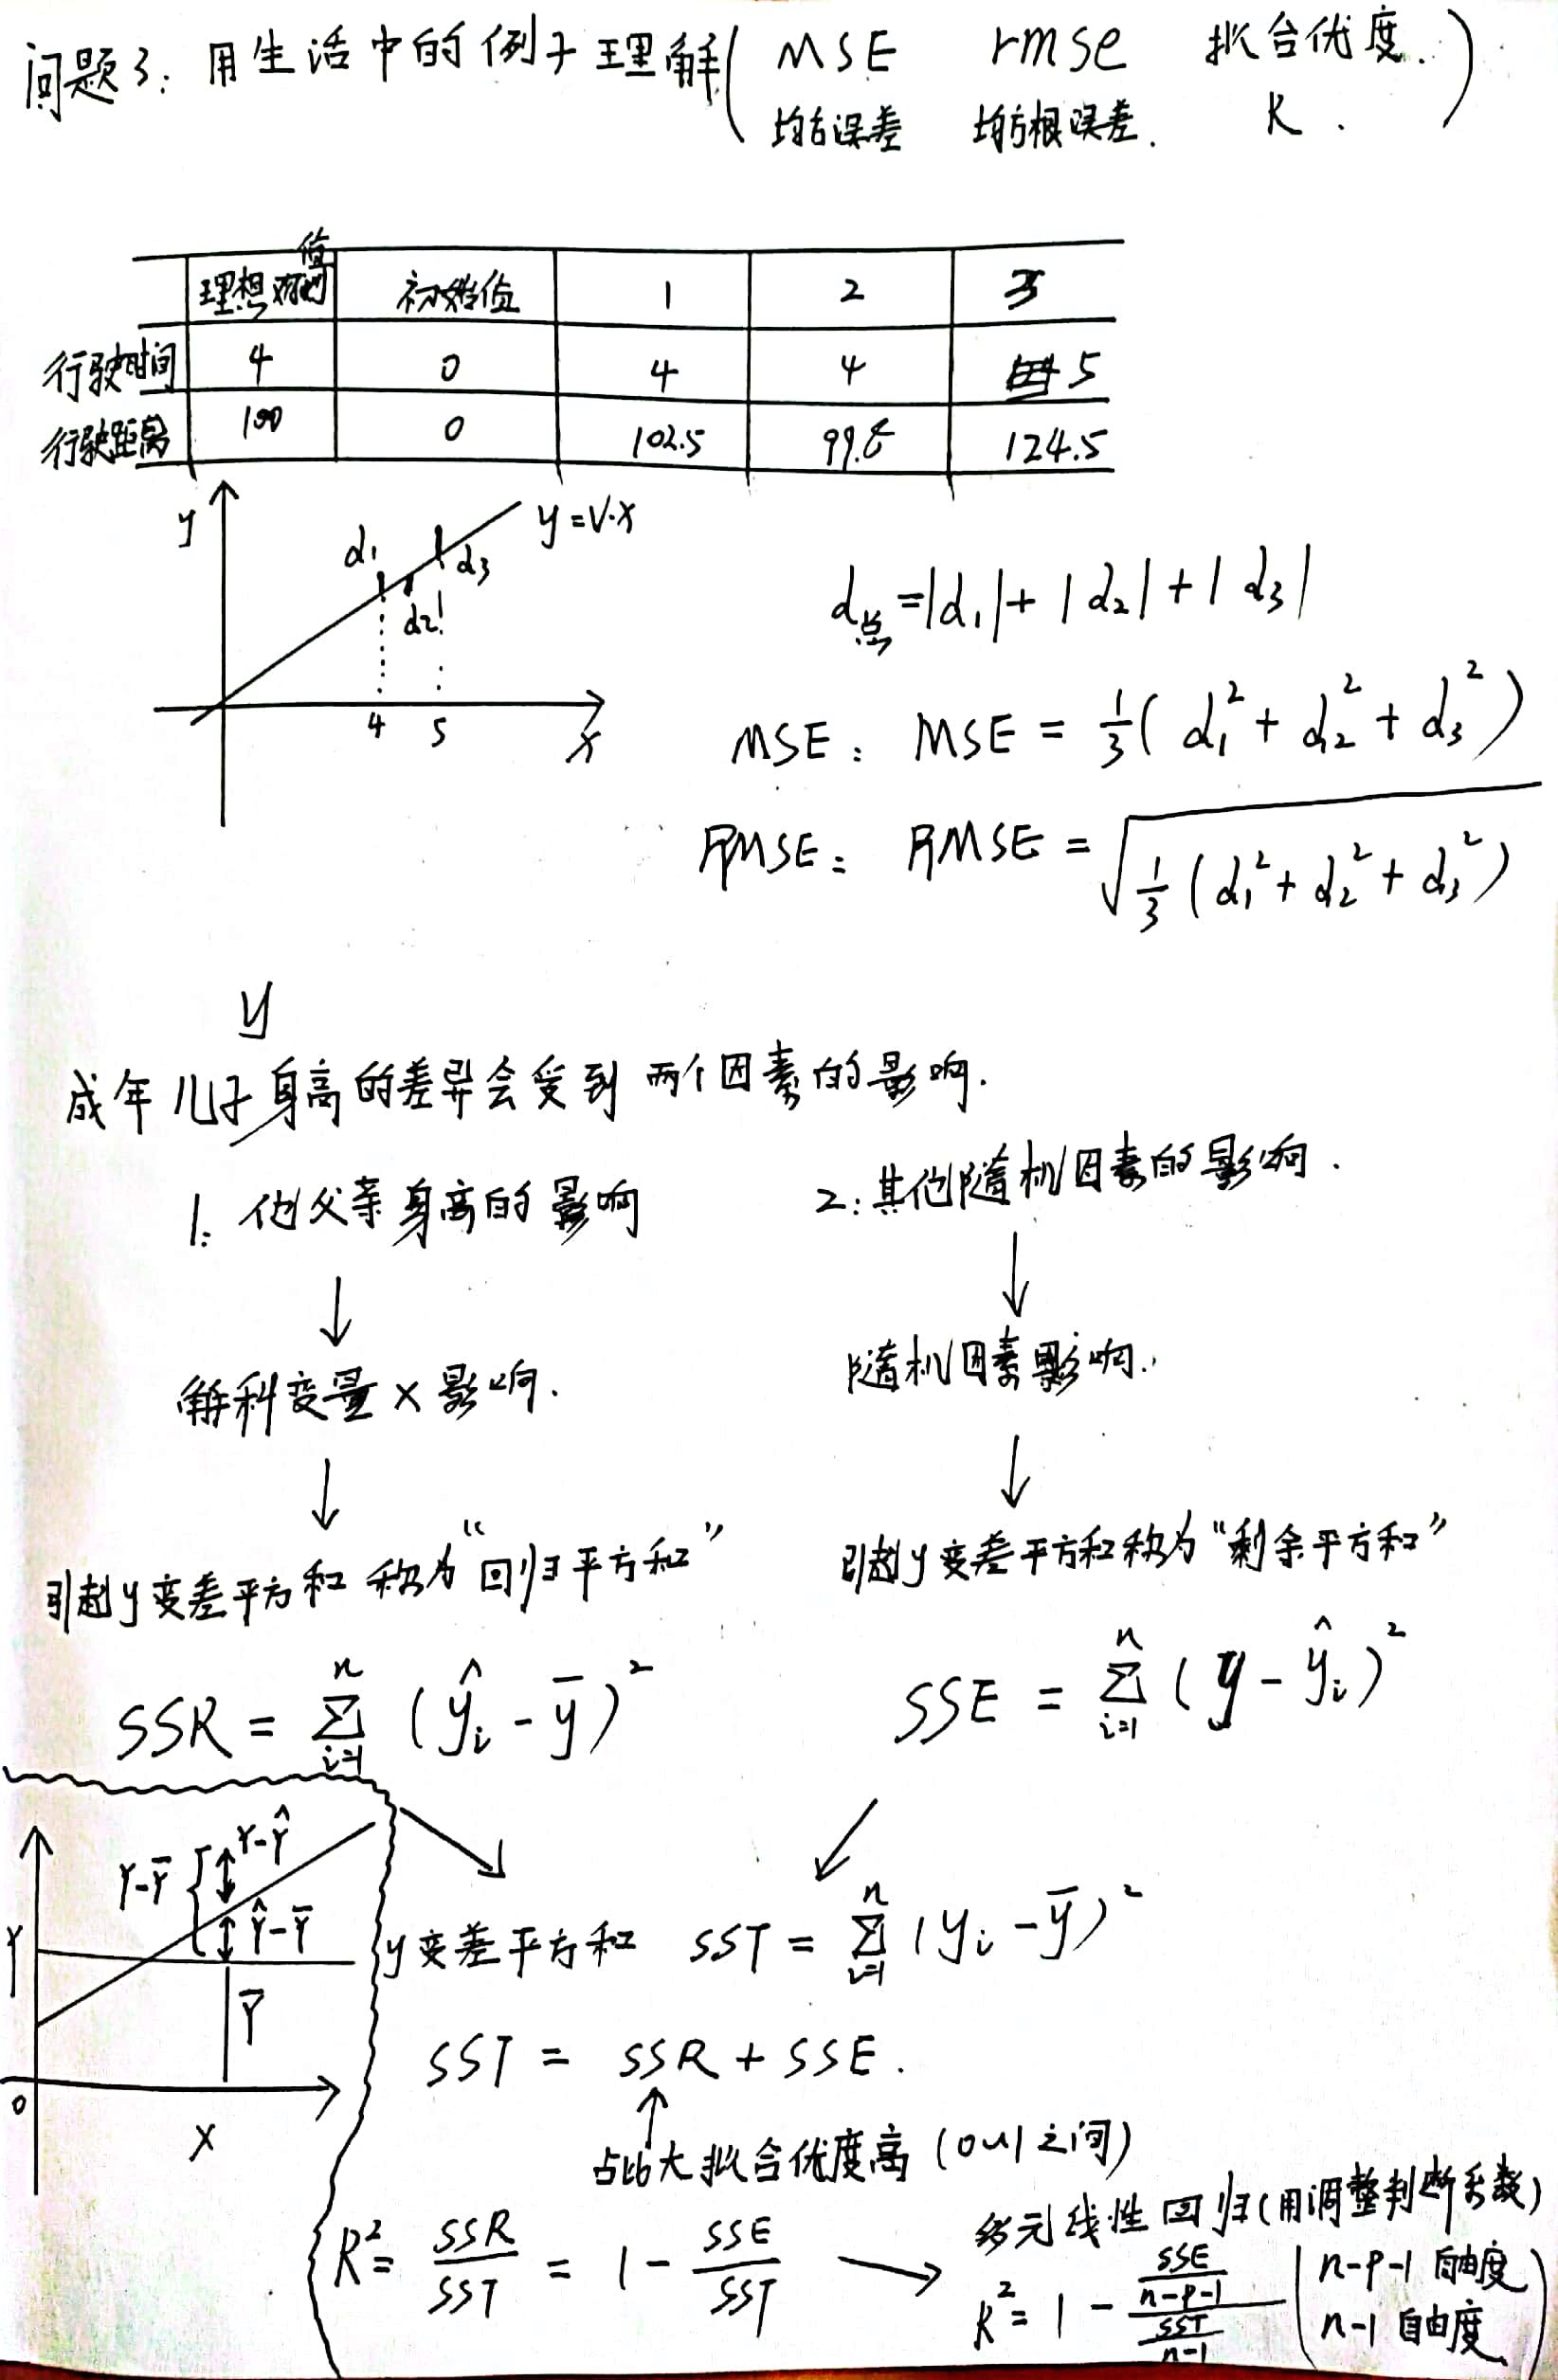 问题3: 用生活中的例子理解( MSE rmse 拟合优度. )
均方误差 均方根误差. R .
理想值 初始值 1 2 3
行驶时间 4 0 4 4 5
行驶距离 100 0 102.5 99.8 124.5
y d₁ d₃ y=V·x
d₂
4 5 x
d总=|d₁|+|d₂|+|d₃|
MSE: MSE = 1/3( d₁² + d₂² + d₃² )
RMSE: RMSE = √(1/3 (d₁² + d₂² + d₃²))
y
成年儿子身高的差异会受到两个因素的影响.
1: 他父亲身高的影响 2:其他随机因素的影响.
↓ ↓
解释变量x影响. 随机因素影响.
↓ ↓
引起y变差平方和称为“回归平方和” 引起y变差平方和称为“剩余平方和”
SSR = Σ(i=1→n) (ŷᵢ - ȳ)² SSE = Σ(i=1→n) (y - ŷᵢ)²
Y-Ȳ Y-Ŷ
Ŷ-Ȳ
Y Ȳ
0 X
y变差平方和 SST = Σ(i=1→n) (yᵢ - ȳ)²
SST = SSR + SSE.
↑
占比大拟合优度高 (0~1之间)
R² = SSR/SST = 1 - SSE/SST → 多元线性回归(用调整判断系数)
R² = 1 - (SSE/(n-p-1))/(SST/(n-1)) ( n-p-1 自由度
n-1 自由度 )